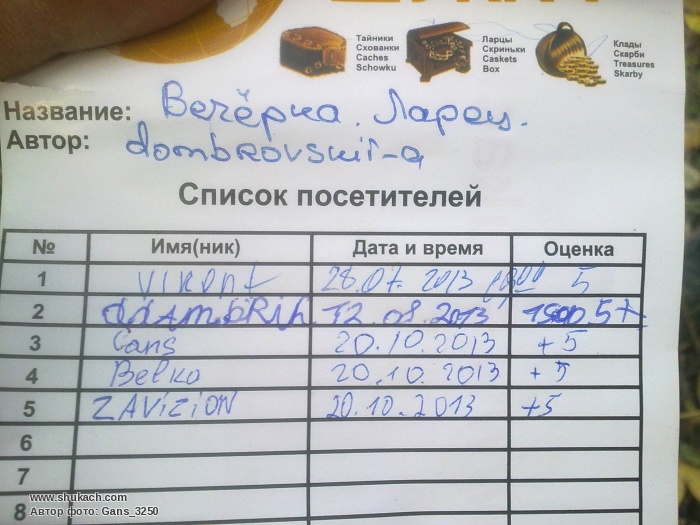 Тайники
Схованки
Caches
Schowku
Ларцы
Скриньки
Caskets
Box
Клады
Скарби
Treasures
Skarby
Название: Вечёрка. Ларец.
Автор: dombrovskii-a
Список посетителей
№ Имя(ник) Дата и время Оценка
1 vikont 28.07. 2013 5
2 12.08.2013 1500 5+
3 Gans 20.10.2013 +5
4 Belka 20.10.2013 +5
5 ZAViZiON 20.10.2013 +5
6
7
8
www.shukach.com
Автор фото: Gans_3250